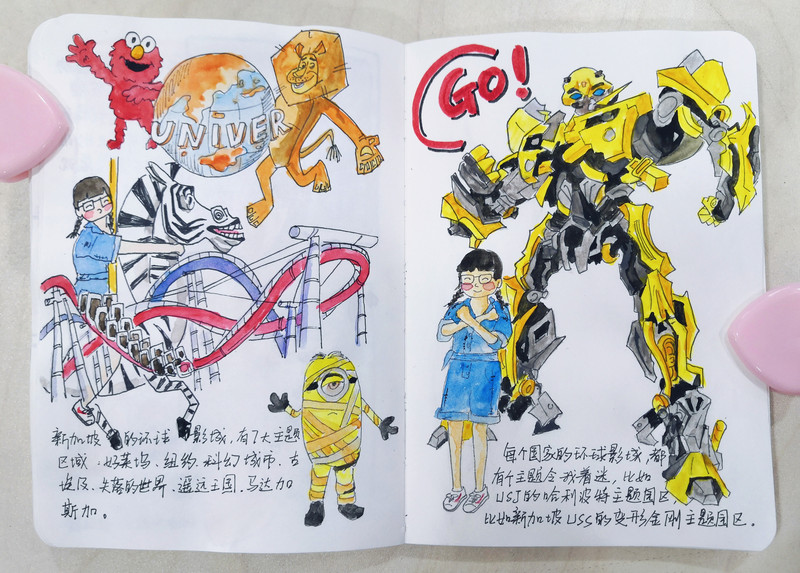 UNIVER
新加坡 的环球 影城，有了大主题
区域 好莱坞、纽约、科幻城市、古
埃及、失落的世界、遥远王国、马达加
斯加。
GO!
每个国家的环球影城，都
有个主题令我着迷，比如
USJ的哈利波特主题园区
比如新加坡USS的变形金刚主题园区。